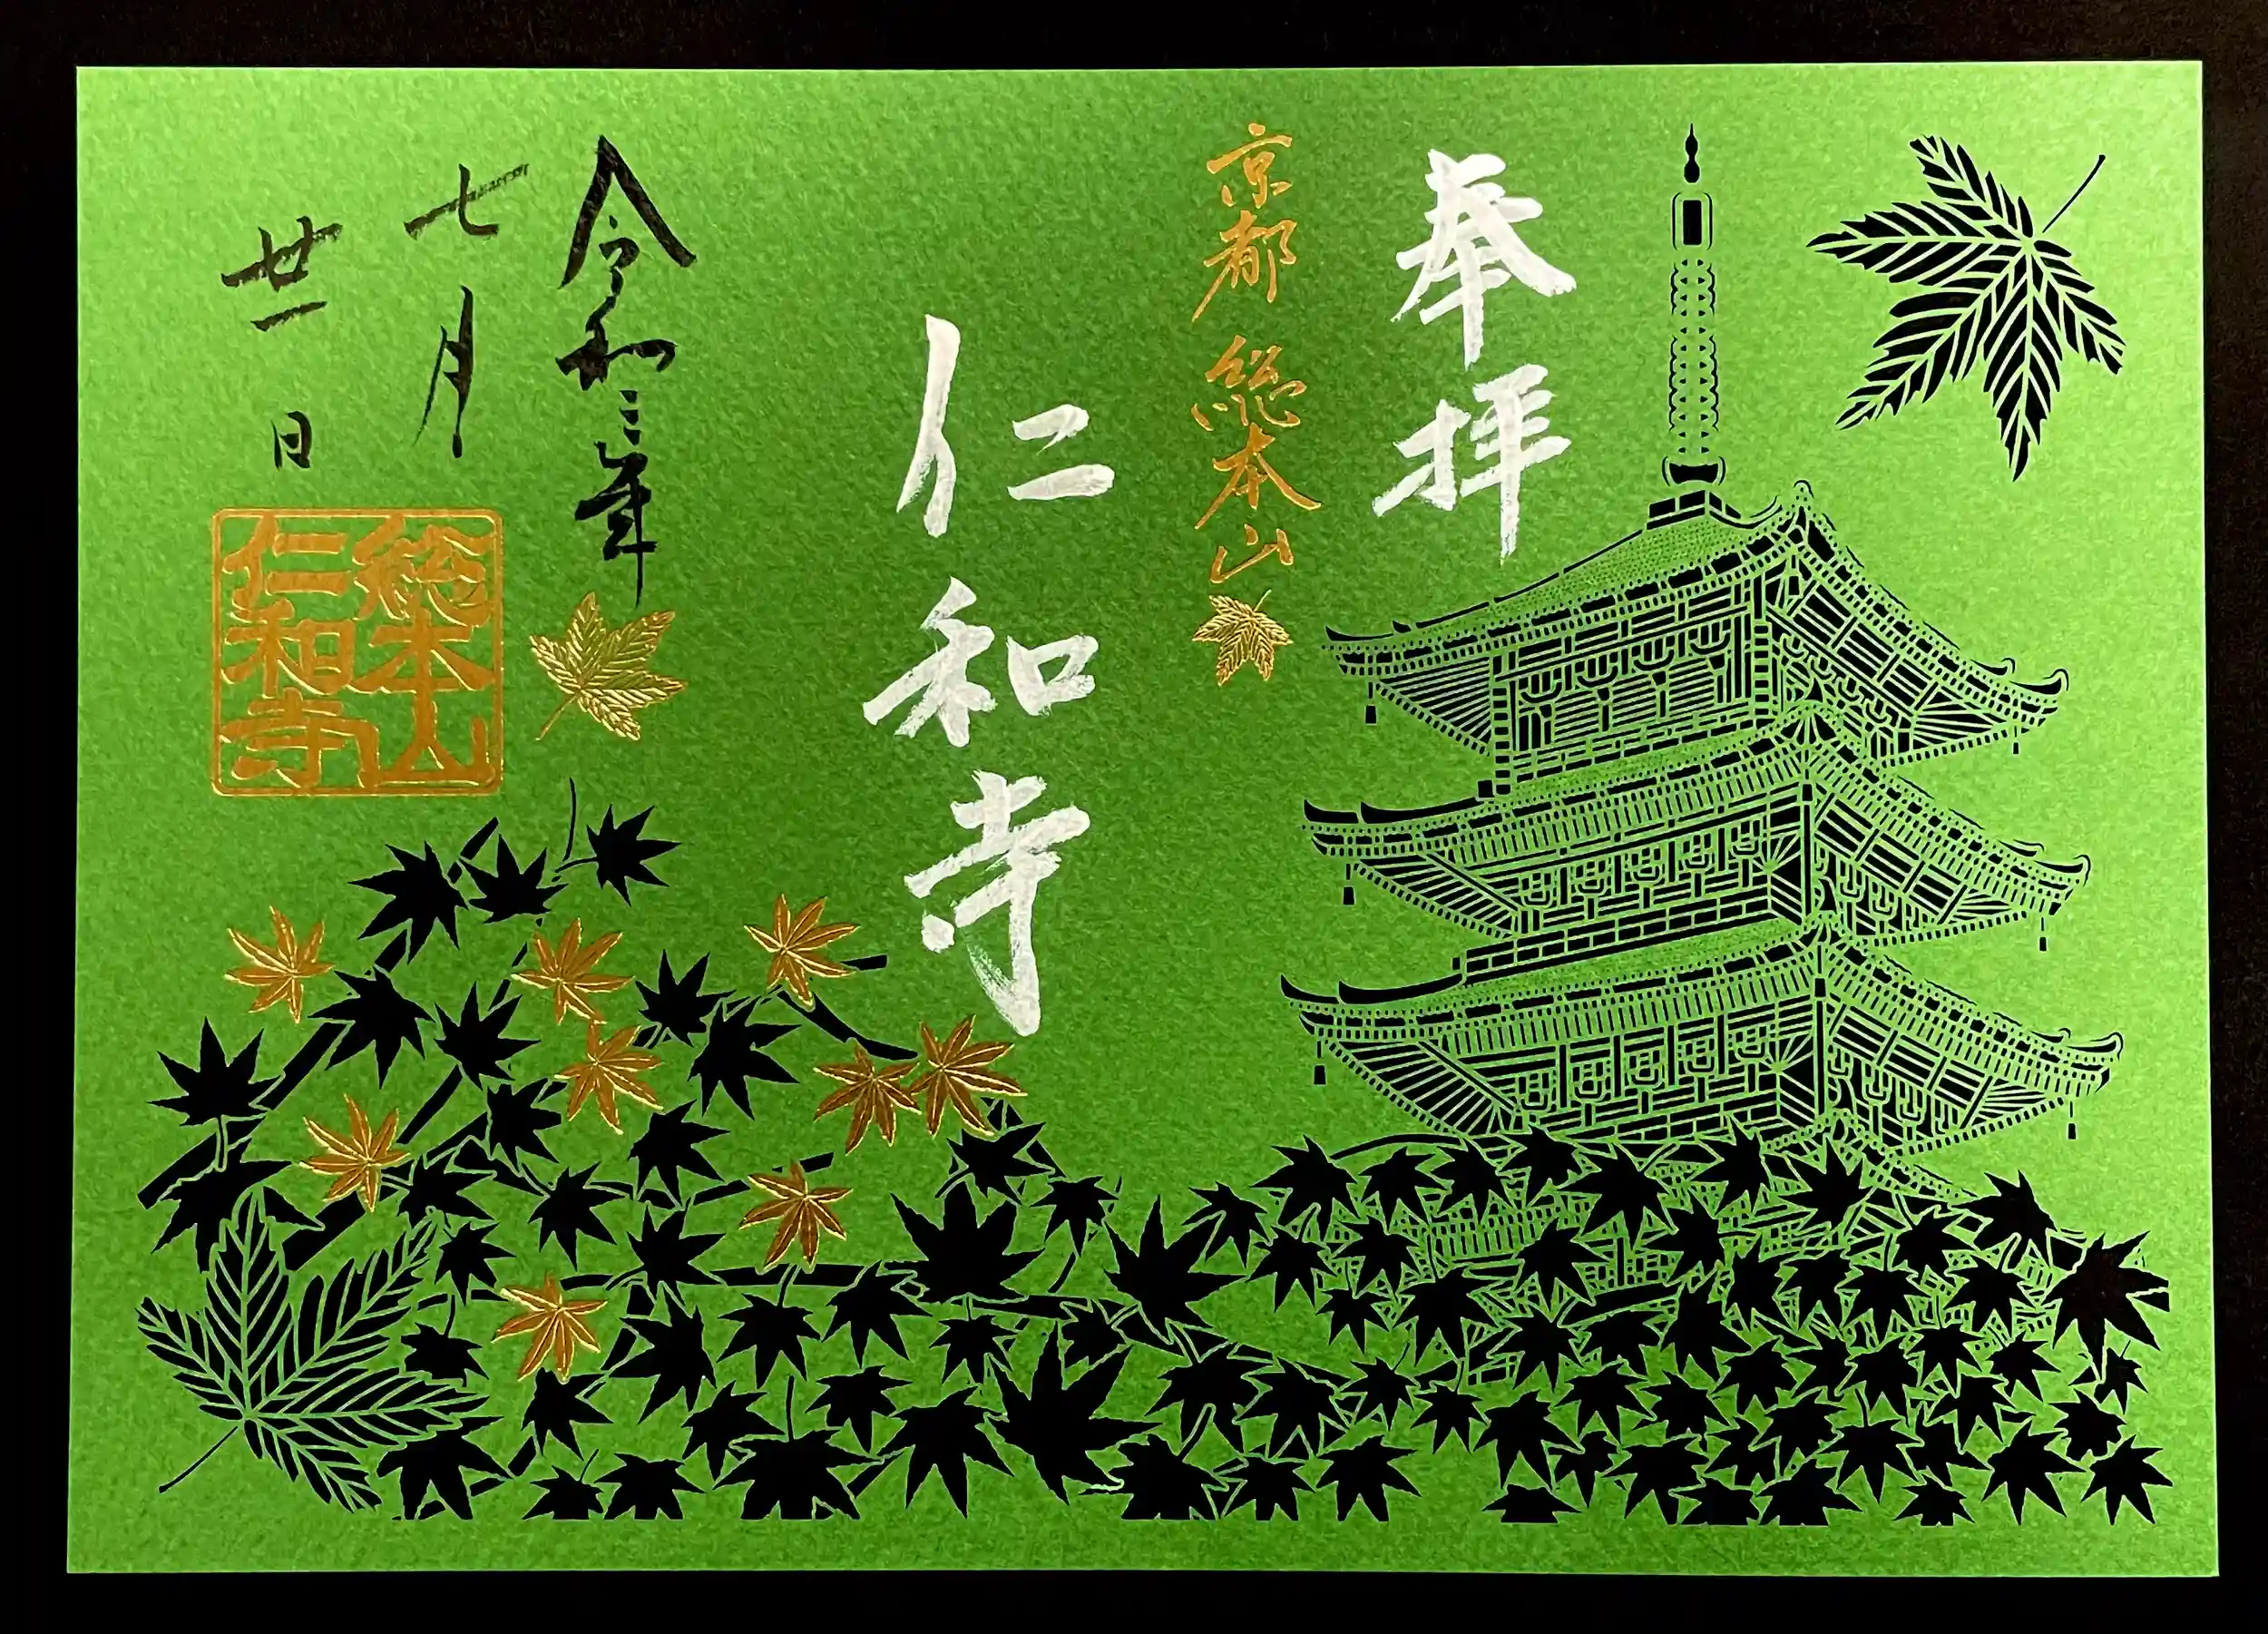 奉拝
京都 総本山
仁和寺
令和三年
七月
廿一日
総本山
仁和寺